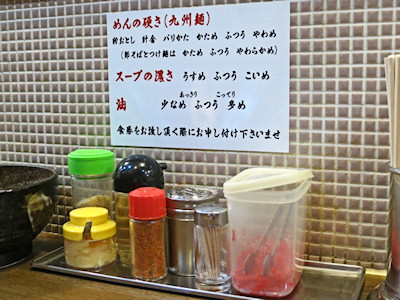 めんの硬さ(九州麺)
粉おとし 針金 バリかた かため ふつう やわめ
(彩そばとつけ麺は かため ふつう やわらかめ)
スープの濃さ うすめ ふつう こいめ
あっさり こってり
油 少なめ ふつう 多め
食券をお渡し頂く際にお申し付け下さいませ